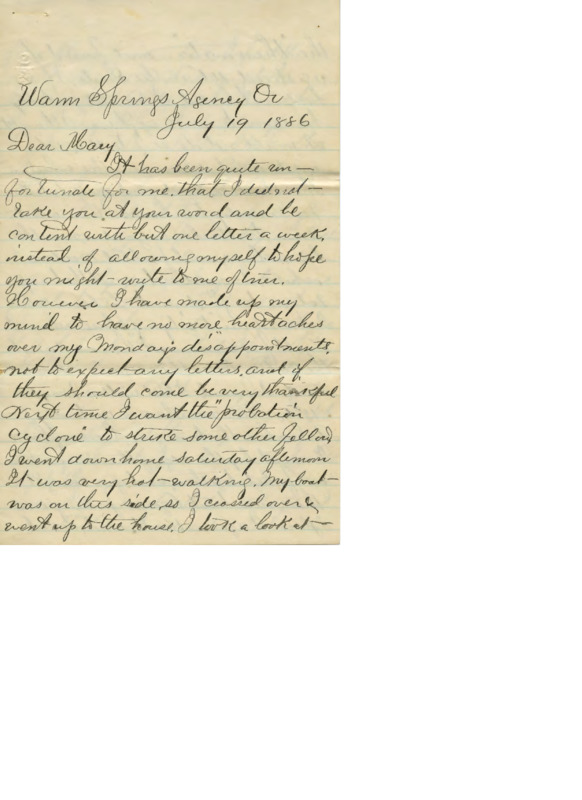 Warm Springs Agency Or
July 19 1886
Dear Mary
It has been quite un-
fortunate for me. that I did not
take you at your word and be
content with but one letter a week.
instead of allowing myself to hope
you might write to me oftner.
However I have made up my
mind to have no more heartaches
over my "Monday's disappointments",
not to expect any letters. and if
they should come be very thankful
Next time I want the "probation
cyclone" to strike some other fellow
I went down home saturday afternoon
It was very hot walking. My boat
was on this side, so I crossed over &
went up to the house. I took a look at